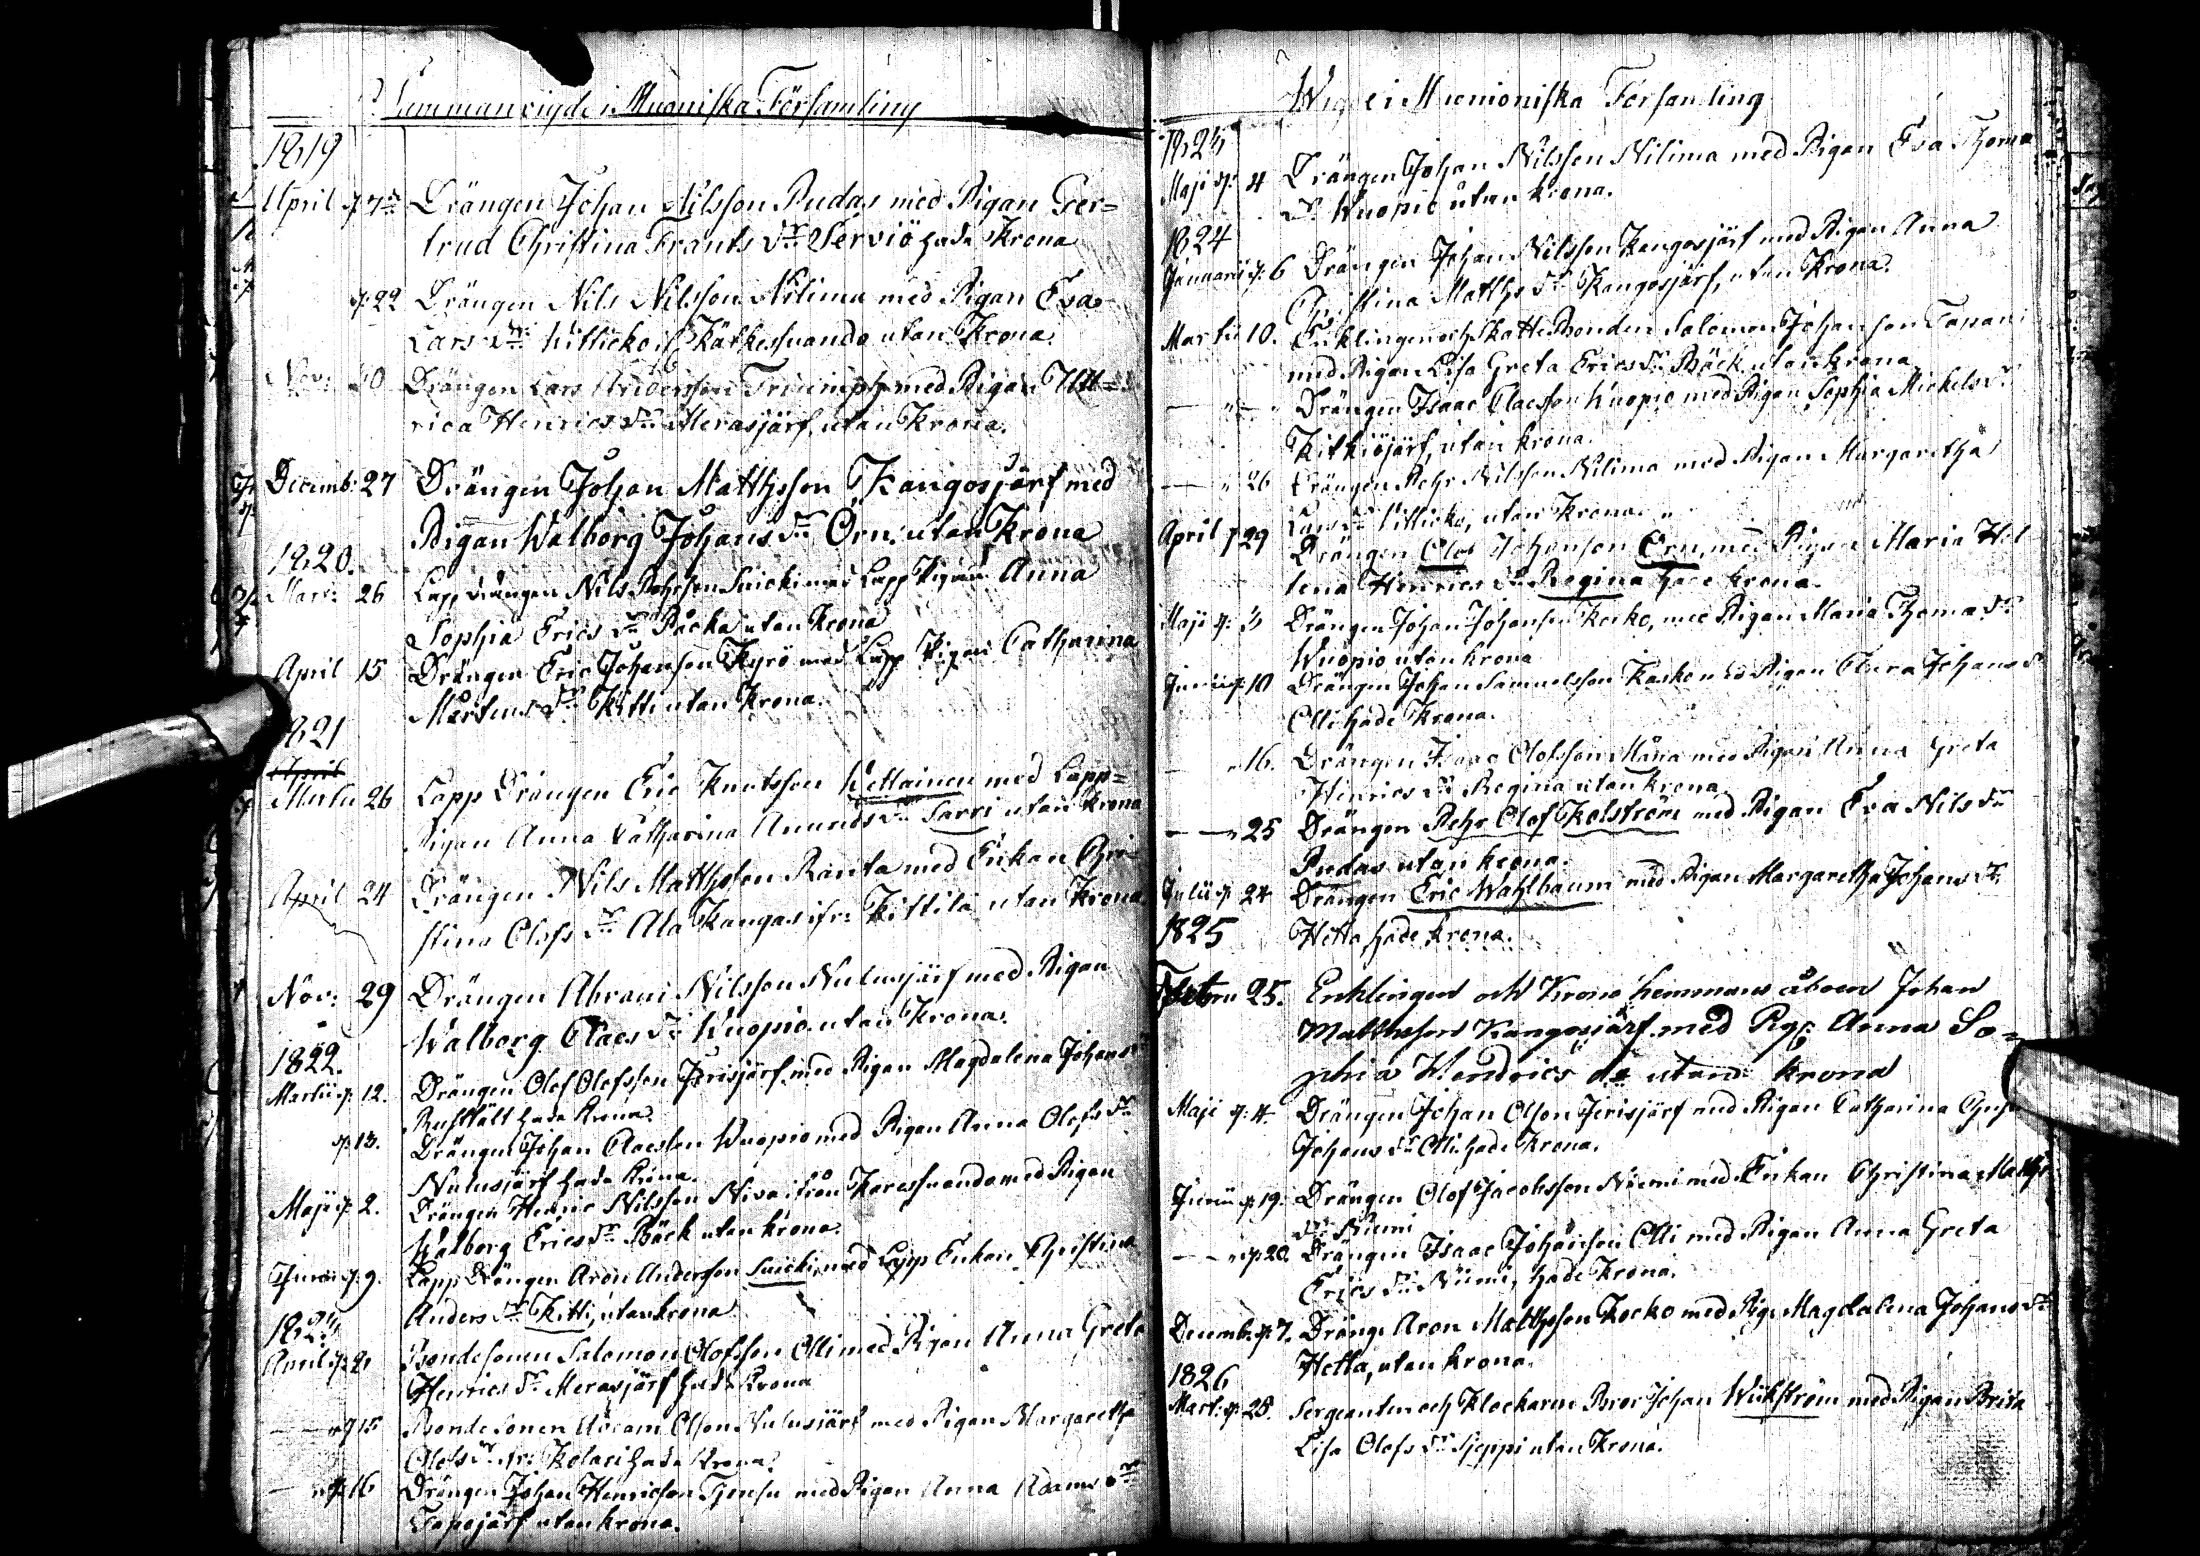 Sammanvigde i Muoniska Församling
1819
April d. 7de Drängen Johan Nilsson Rudas med Pigan Ger=
trud Christina Frants dr Serviö hade Krona
d. 22 Drängen Nils Nilsson Nilima med Pigan Eva
Lars dr Kättkesuando utan Krona.
Nov: 10 Drängen Lars Andersson Triumph med Pigan Ull=
rica Henrics dr Merasjärf, utan Krona.
Decemb: 27 Drängen Johan Matthsson Kangosjärf med
Pigan Walborg Johans dr Örn, utan Krona
1820.
Mars: 26 Lapp Drängen Nils Pehrsson Suicki med Lapp Pigan Anna
Sophia Erics dr Päcka utan Krona
April 15 Drängen Eric Johansson Kyrö med Lapp Pigan Catharina
Mårtens dr Kitti utan Krona.
1821
April
Martii 26 Lapp Drängen Eric Knutsson Wettainen med Lapp=
Pigan Anna Catharina Amunds dr Sarri utan Krona
April 24 Drängen Nils Matthsson Ranta med Enkan Chri=
stina Olofs dr Ala Kangas ifr: Kittilä utan Krona.
Nov: 29 Drängen Abram Nilsson Nulusjärf med Pigan
Walborg Claes dr Kuopio utan Krona.
1822.
Martii d. 12. Drängen Olof Olofsson Jerisjärf med Pigan Magdalena Johans dr
Rusttält hade Krona.
d. 13. Drängen Johan Claesson Wuopio med Pigan Anna Olofs dr
Nulusjärf hade Krona.
Maji d. 2. Drängen Henric Nilsson Niva ifrån Karesuando med Pigan
Walborg Erics dr Bäck utan krona.
Junii d. 9. Lapp Drängen Aron Andersson Suicki, med Lapp Enkan Christina
Anders dr Kitti, utan krona
1823
April d. 2 Bondesonen Salomon Olofsson Olli med Pigan Anna Greta
Henrics dr Merasjärf hade Krona
— d. 15 Bonde Sonen Abram Olsson Nulusjärf med Pigan Margaretha
Olofs dr fr: Kolari hade Krona.
— d. 16 Drängen Johan Henricsson med Pigan Anna Adams dr
Tapojärf utan krona.
Wigde i Muonioniska Församling
1823
Maji d. 4 Drängen Johan Nilsson Nilima med Pigan Eva Thoma
dr Wuopio utan krona.
1824
Januarii d. 6 Drängen Johan Nilsson Kangosjärf med Pigan Anna
Christina Matths dr Kangosjärf, utan Krona.
Martii 10. Enklingen och Skatte Bonden Salomon Johansson Tapani
med Pigan Lisa Greta Erics dr Bäck utan krona
— " — Drängen Isaac Claesson Kuopio med Pigan Sophia Mickels dr
Kitkiöjärf, utan krona.
— " 26 Drängen Pehr Nilsson Nilima med Pigan Margaretha
Lars dr, utan Krona.
April d 29 Drängen Olof Johansson Örn, med Pigan Maria He
lena Henrics dr Regina hade krona.
Maji d. 3 Drängen Johan Johansson Kesko, med Pigan Maria Thoma dr
Wuopio utan krona
Junii d. 10 Drängen Johan Samuelsson Kasko med Pigan Clara Johans dr
Olli hade Krona.
— " 16. Drängen Isaac Olofsson Måna med Pigan Anna Greta
Henrics dr Regina utan krona
— " 25 Drängen Pehr Olof Kolström med Pigan Eva Nils dr
Rudas utan krona.
Julii d. 24 Drängen Eric Wahlbaum med Pigan Margaretha Johans dr
Hetta hade krona.
1825
Febru 25. Enklingen och Krono hemmans åboen Johan
Matthsson Kangosjärf med Pig: Anna So=
phia Hendrics dr utan krona
Maji d. 4. Drängen Johan Olson Jerisjärf med Pigan Catharina
Johans dr Olli hade Krona.
Junii d. 19. Drängen Olof Jacobsson Niemi med Enkan Christina Matths
dr Niemi
— " d. 20. Drängen Isaac Johansson Olli med Pigan Anna Greta
Erics dr Niemi, hade Krona.
Decemb. d. 7. Dräng: Aron Matthsson Kocko med Pig: Magdalena Johans dr
Hetta, utan krona.
1826
Mart: d. 28. Sergeanten och Klockaren Bror Johan Wickström med Pigan Brita
Lisa Olofs dr Sjeppi utan Krona.